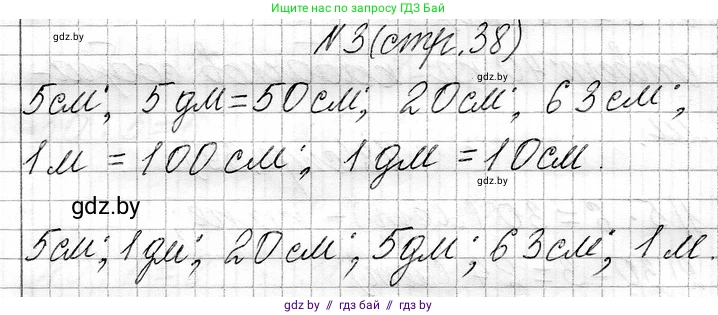 Ищите нас по запросу ГДЗ Бай
gdz.by
№3(стр.38)
gdz.by
5см; 5дм=50см; 20см; 63см;
1м = 100см; 1дм = 10см.
gdz.by
gdz.by
5см; 1дм; 20см; 5дм; 63см; 1м.
gdz.by // гдз бай // гдз by